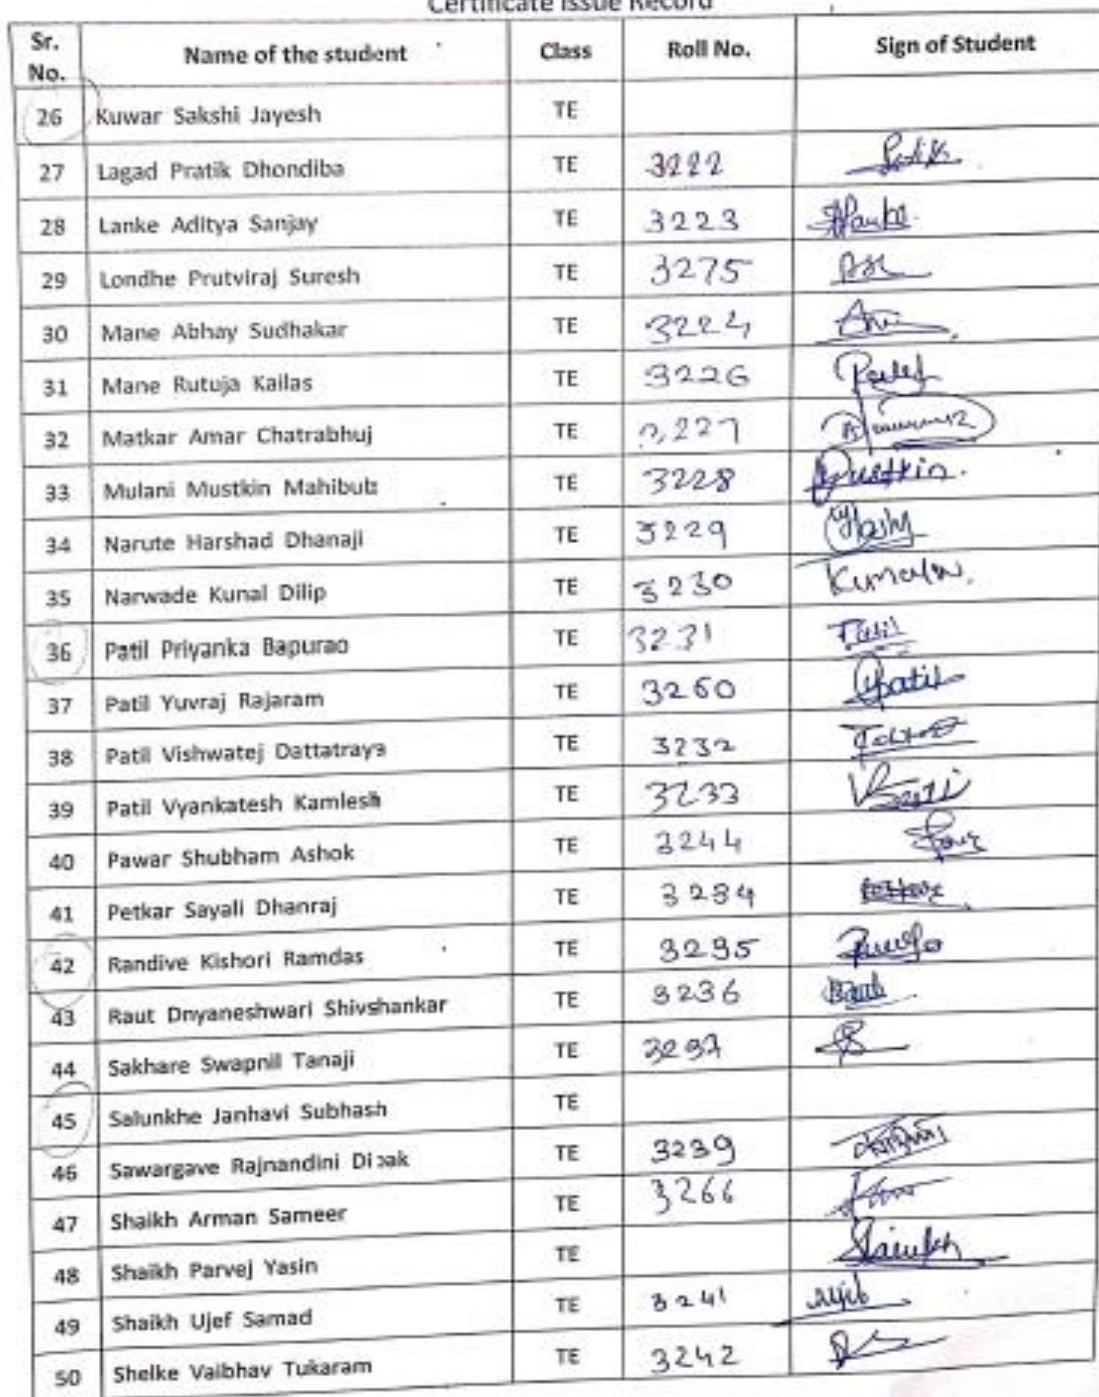 Certificate Issue Record
Sr. No. Name of the student Class Roll No. Sign of Student
26 Kuwar Sakshi Jayesh TE
27 Lagad Pratik Dhondiba TE 3222
28 Lanke Aditya Sanjay TE 3223
29 Londhe Prutviraj Suresh TE 3275
30 Mane Abhay Sudhakar TE 3224
31 Mane Rutuja Kailas TE 3226
32 Matkar Amar Chatrabhuj TE 3227
33 Mulani Mustkin Mahibub TE 3228 Mustkin.
34 Narute Harshad Dhanaji TE 3229
35 Narwade Kunal Dilip TE 3230
36 Patil Priyanka Bapurao TE 3231 Patil
37 Patil Yuvraj Rajaram TE 3260 Patil
38 Patil Vishwatej Dattatraya TE 3232
39 Patil Vyankatesh Kamlesh TE 3233
40 Pawar Shubham Ashok TE 3244
41 Petkar Sayali Dhanraj TE 3234
42 Randive Kishori Ramdas TE 3235
43 Raut Dnyaneshwari Shivshankar TE 3236
44 Sakhare Swapnil Tanaji TE 3237
45 Salunkhe Janhavi Subhash TE
46 Sawargave Rajnandini Dipak TE 3239
47 Shaikh Arman Sameer TE 3266
48 Shaikh Parvej Yasin TE
49 Shaikh Ujef Samad TE 3241
50 Shelke Vaibhav Tukaram TE 3242